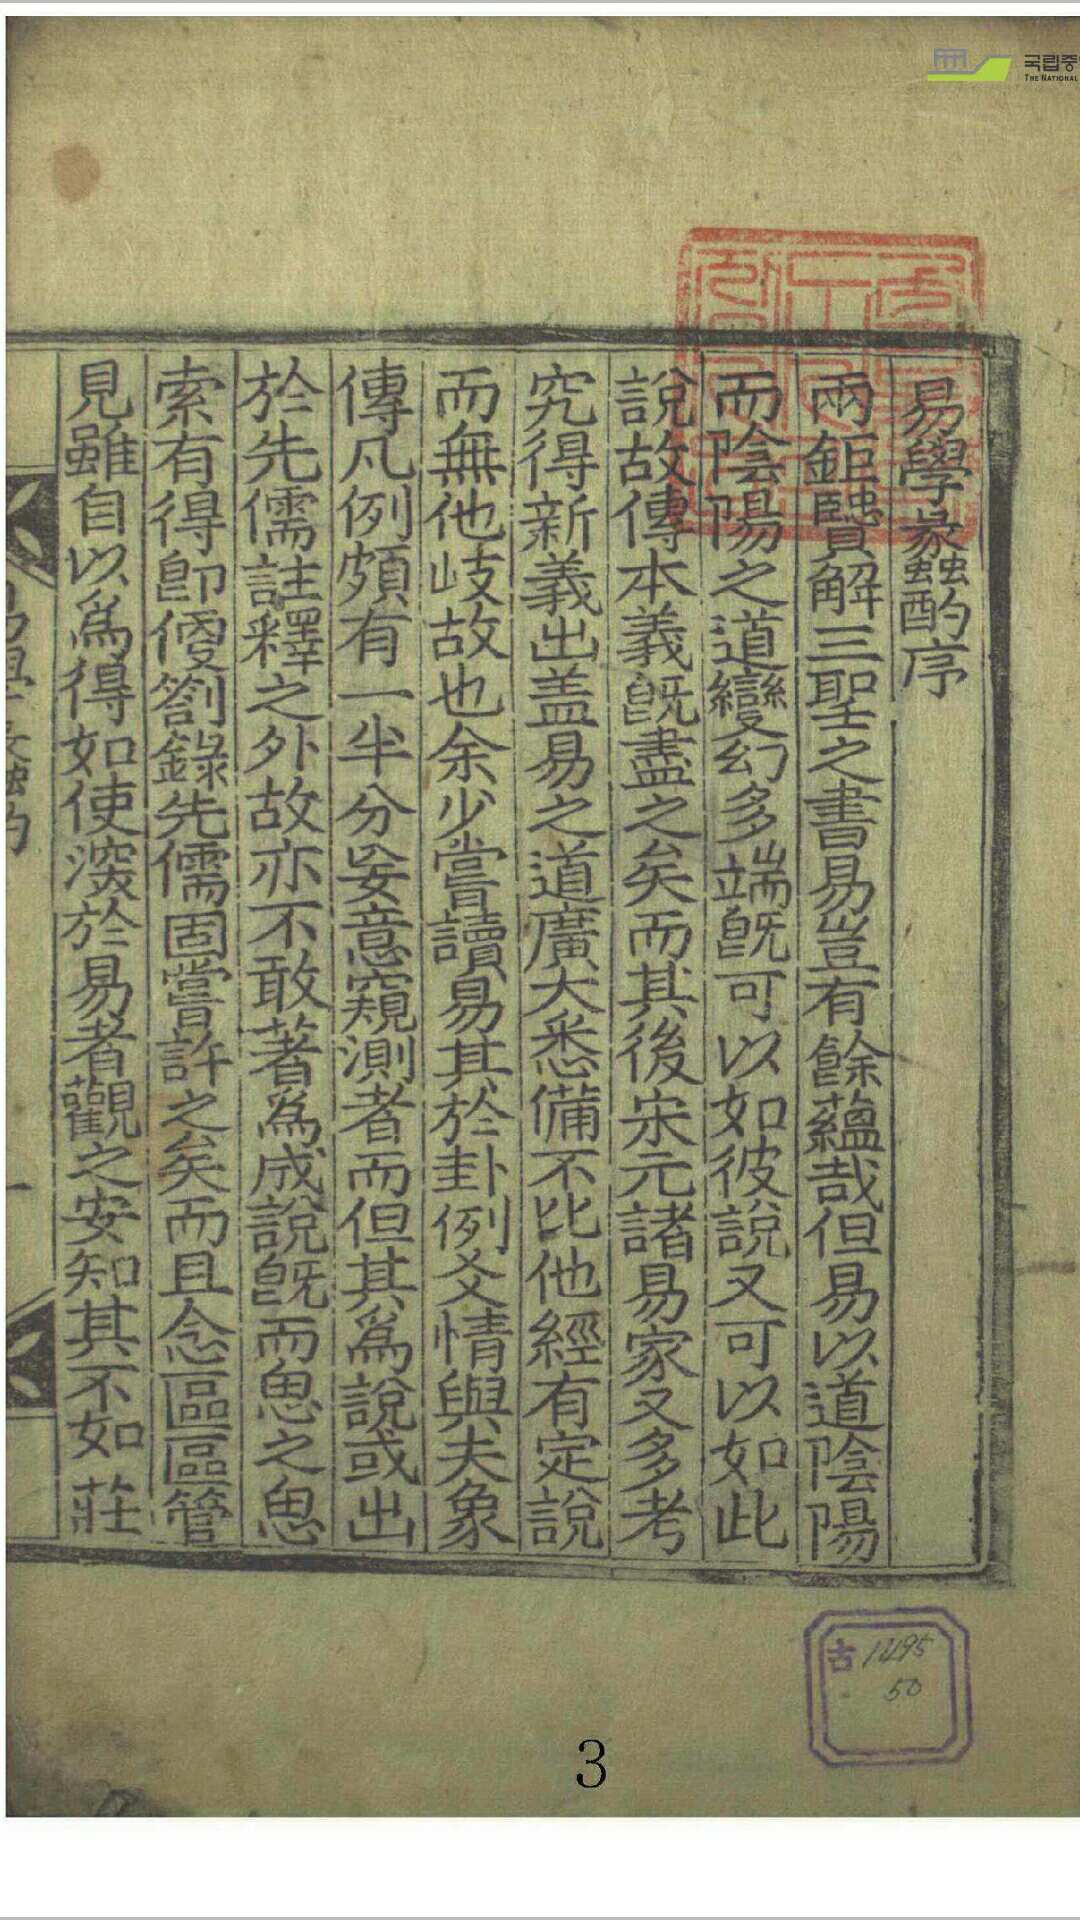 국립중
THE NATIONAL
易學蠡酌序
兩鉅賢解三聖之書易豈有餘蘊哉但易以道陰陽
而陰陽之道變幻多端旣可以如彼說又可以如此
說故傳本義旣盡之矣而其後宋元諸易家又多考
究得新義出盖易之道廣大悉備不比他經有定說
而無他岐故也余少嘗讀易其於卦例爻情與夫象
傳凡例頗有一半分妄意窺測者而但其爲說或出
於先儒註釋之外故亦不敢著爲成說旣而思之思
索有得卽便劄錄先儒固嘗許之矣而且念區區管
見雖自以爲得如使深於易者觀之安知其不如莊
一
古1495
50
3